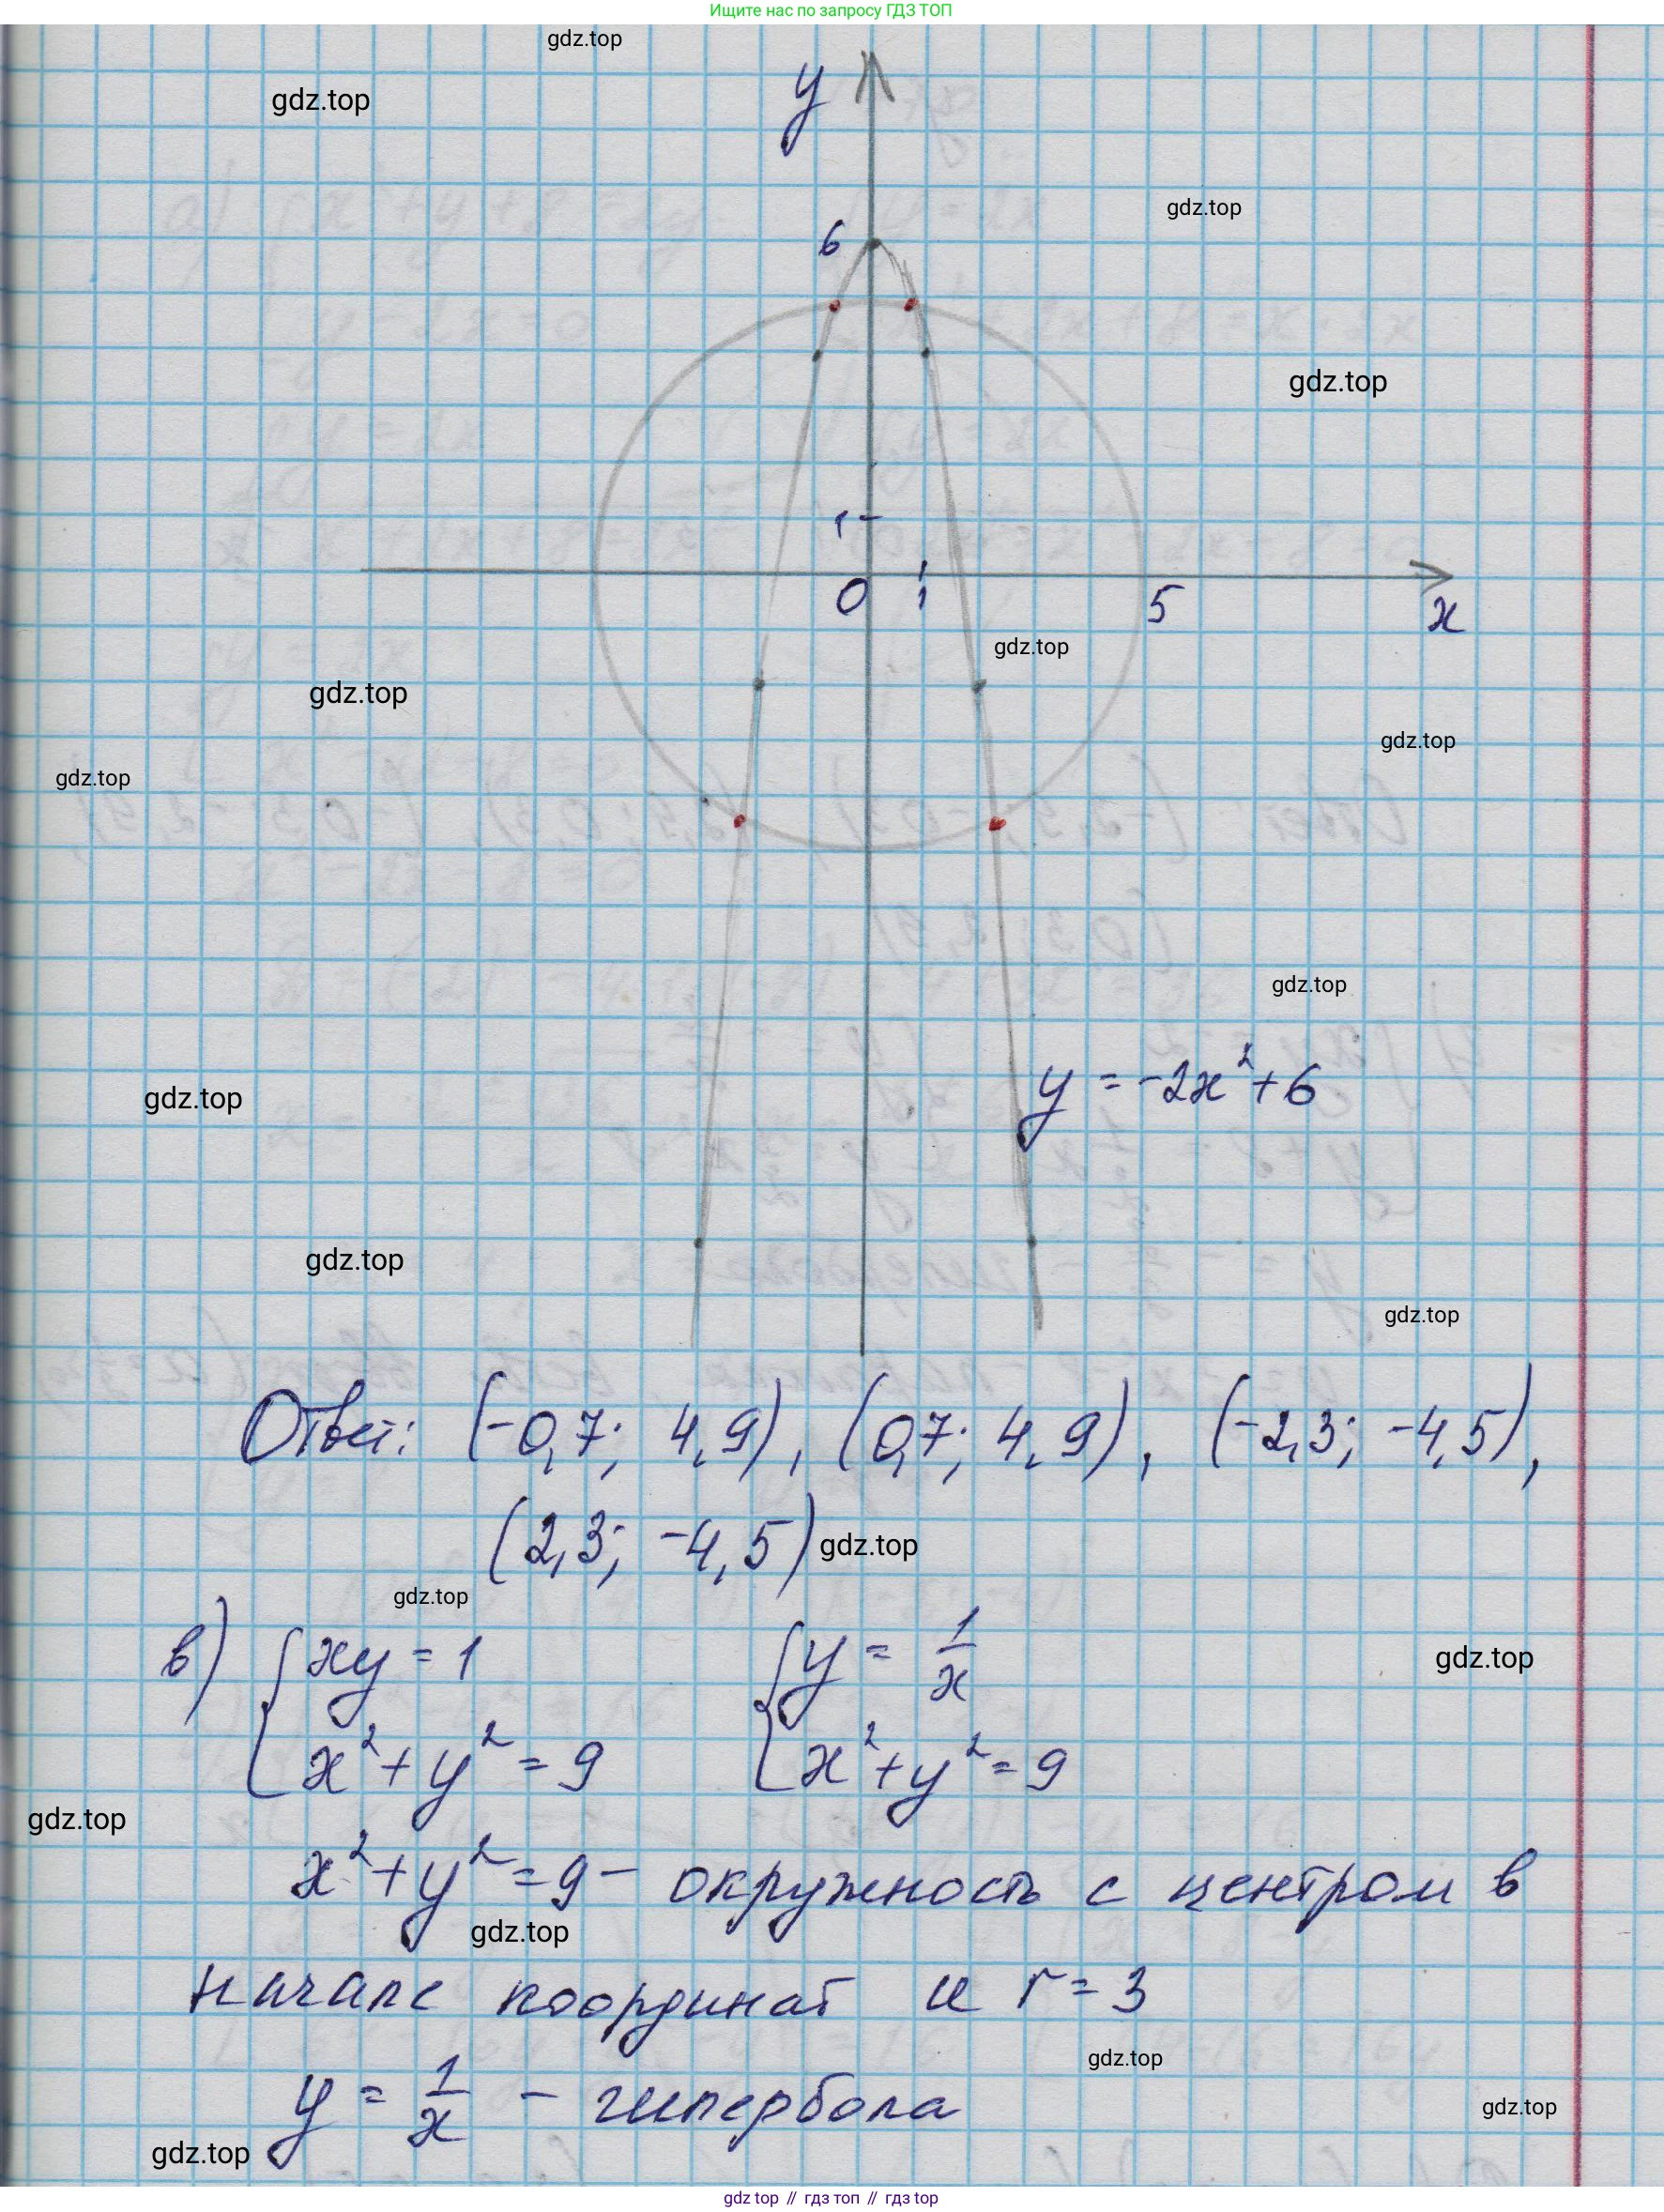 Ищите нас по запросу ГДЗ ТОП
gdz.top
gdz.top
y
gdz.top
6
gdz.top
1
0 1 5 x
gdz.top
gdz.top
gdz.top
gdz.top
gdz.top
y = -2x² + 6
gdz.top
gdz.top
gdz.top
Ответ: (-0,7; 4,9), (0,7; 4,9), (-2,3; -4,5),
(2,3; -4,5)
gdz.top
gdz.top
в) { xy = 1 { y = 1/x
x² + y² = 9 x² + y² = 9
gdz.top
gdz.top
x² + y² = 9 – окружность с центром в
gdz.top
начале координат и r = 3
gdz.top
y = 1/x – гипербола
gdz.top
gdz.top
gdz top // гдз топ // gdz top